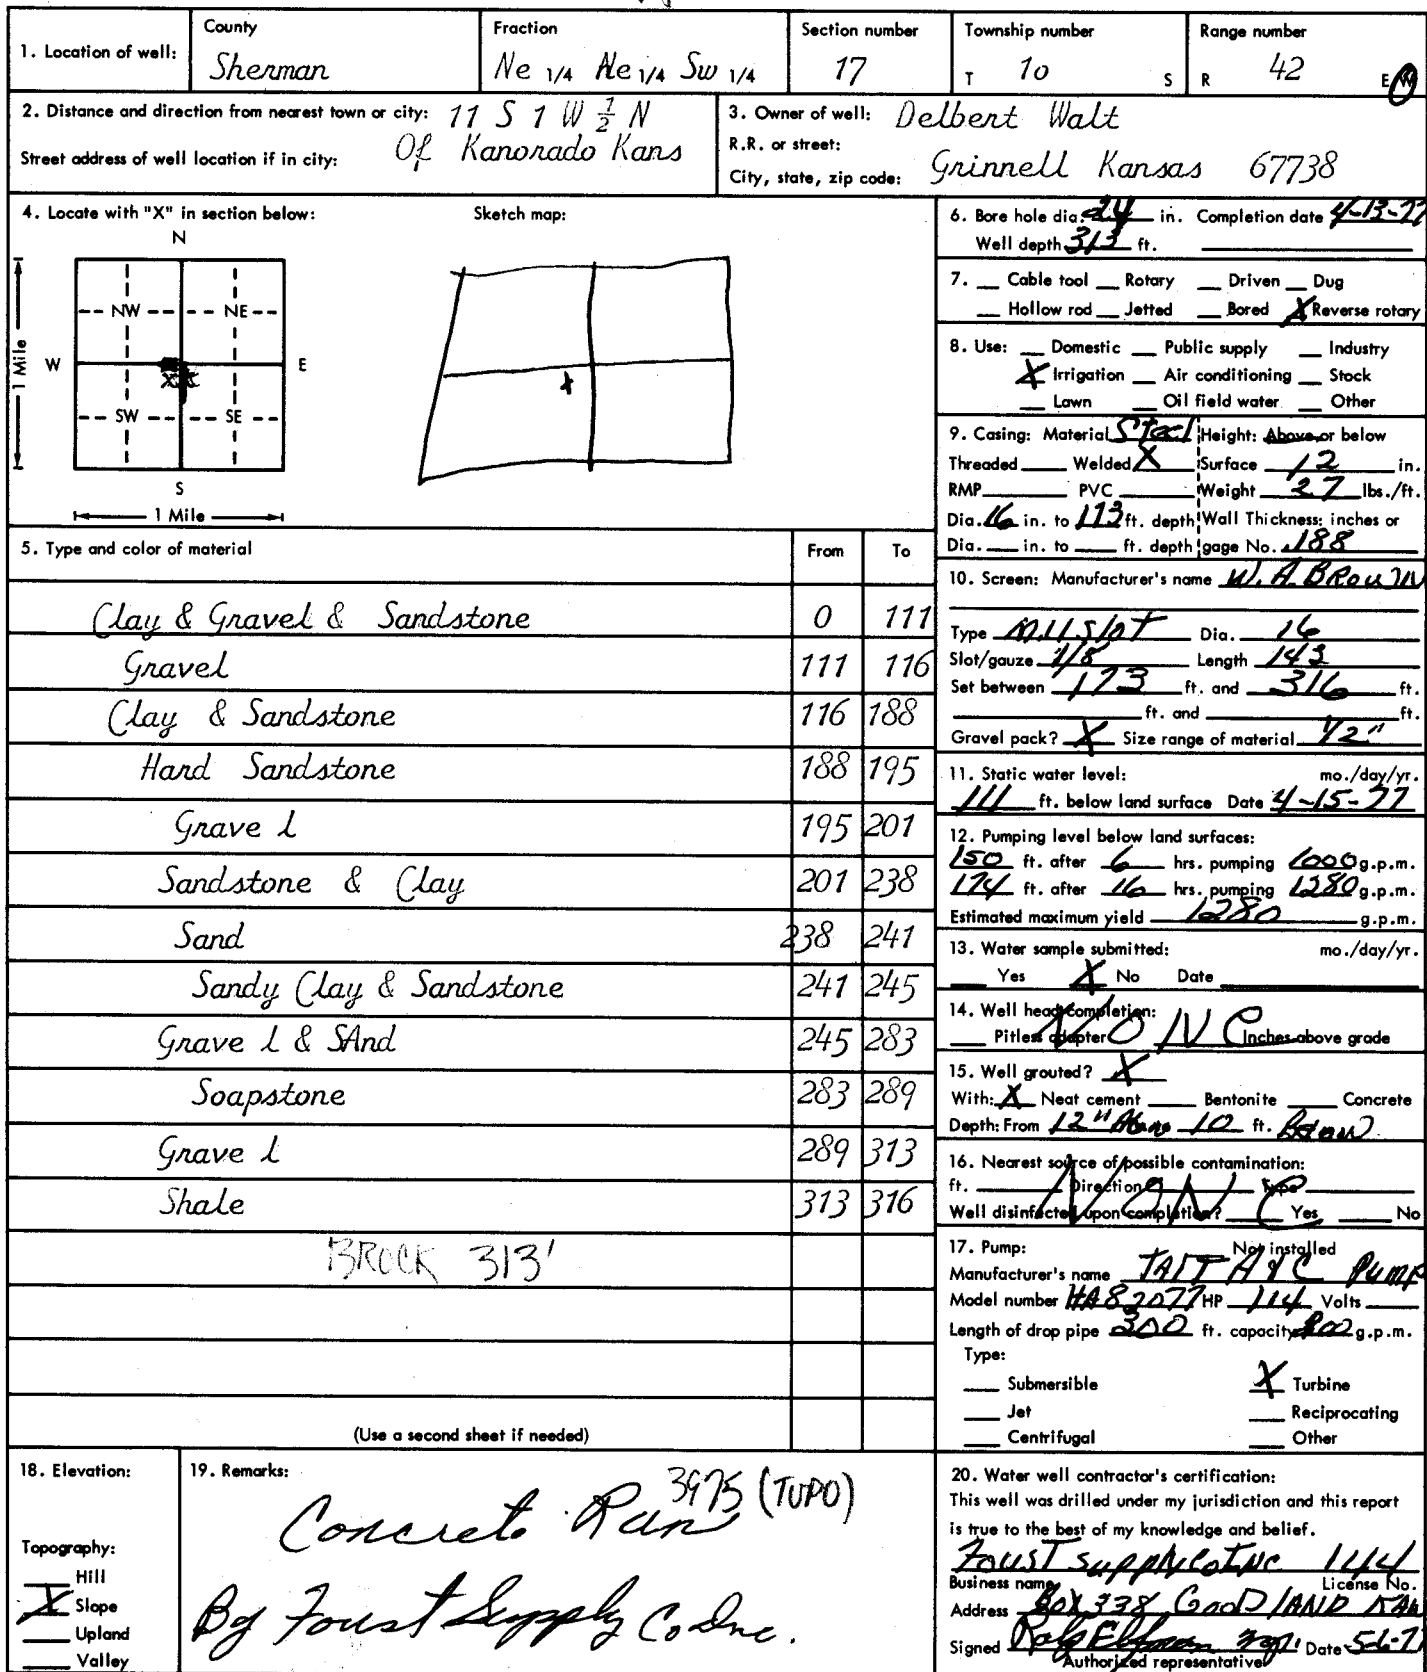 1. Location of well: County Sherman Fraction Ne 1/4 Ne 1/4 Sw 1/4 Section number 17 Township number T 10 S Range number R 42 E W
2. Distance and direction from nearest town or city: 11 S 1 W 1/2 N
Of Kanorado Kans
Street address of well location if in city:
3. Owner of well: Delbert Walt
R.R. or street:
City, state, zip code: Grinnell Kansas 67738
4. Locate with "X" in section below: Sketch map:
N
NW NE
W E
X X
SW SE
S
1 Mile
1 Mile
x
5. Type and color of material From To
Clay & Gravel & Sandstone 0 111
Gravel 111 116
Clay & Sandstone 116 188
Hard Sandstone 188 195
Grave l 195 201
Sandstone & Clay 201 238
Sand 238 241
Sandy Clay & Sandstone 241 245
Grave l & SAnd 245 283
Soapstone 283 289
Grave l 289 313
Shale 313 316
BROCK 313'
(Use a second sheet if needed)
6. Bore hole dia. 24 in. Completion date 4-13-77
Well depth 313 ft.
7. Cable tool Rotary Driven Dug
Hollow rod Jetted Bored X Reverse rotary
8. Use: Domestic Public supply Industry
X Irrigation Air conditioning Stock
Lawn Oil field water Other
9. Casing: Material Steel Height: Above or below
Threaded Welded X Surface 12 in.
RMP PVC Weight 27 lbs./ft.
Dia. 16 in. to 173 ft. depth Wall Thickness: inches or
Dia. in. to ft. depth gage No. .188
10. Screen: Manufacturer's name W.A. Brown
Type Mill Slot Dia. 16
Slot/gauze 1/8 Length 143
Set between 173 ft. and 316 ft.
ft. and ft.
Gravel pack? X Size range of material 1/2"
11. Static water level: mo./day/yr.
111 ft. below land surface Date 4-15-77
12. Pumping level below land surfaces:
150 ft. after 6 hrs. pumping 1000 g.p.m.
174 ft. after 16 hrs. pumping 1280 g.p.m.
Estimated maximum yield 1280 g.p.m.
13. Water sample submitted: mo./day/yr.
Yes X No Date
14. Well head completion: NONE
Pitless adapter Inches above grade
15. Well grouted? X
With: X Neat cement Bentonite Concrete
Depth: From 12" Above 10 ft. Below
16. Nearest source of possible contamination: NONE
ft. Direction Type
Well disinfected upon completion? Yes No
17. Pump: Not installed
Manufacturer's name TAIT A&C Pump
Model number HA82077 HP 114 Volts
Length of drop pipe 300 ft. capacity 800 g.p.m.
Type:
Submersible X Turbine
Jet Reciprocating
Centrifugal Other
18. Elevation:
Topography:
Hill
X Slope
Upland
Valley
19. Remarks:
3975 (TOPO)
Concrete Ran
By Foust Supply Co Inc.
20. Water well contractor's certification:
This well was drilled under my jurisdiction and this report
is true to the best of my knowledge and belief.
Foust Supply Co Inc 144
Business name License No.
Address Box 338 GoodLAND KAN
Signed mgr. Date 5-6-77
Authorized representative